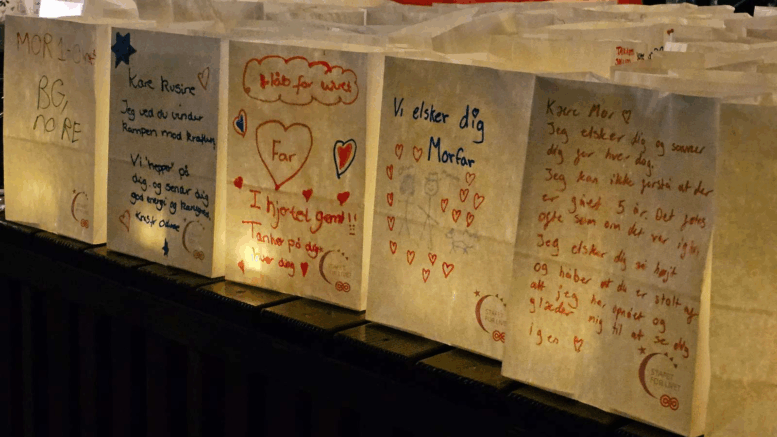 MOR
BG,
Kære Kusine
Jeg ved du vinder
kampen med kræften
Vi "hepper" på
dig og sender dig
god energi og
Håb for livet
Far
I hjertet gemt!!
Tanker på dig
hver dag
Vi elsker dig
Morfar
Kære Mor
Jeg elsker dig og savner
dig hver dag.
Jeg kan ikke forstå at der
er gået 5 år. Det føles
ofte som om det var igår.
Jeg elsker dig så højt
og håber at du er stolt af
alt jeg har opnået og
glæder mig til at se dig
igen
STAFET
FOR LIVET